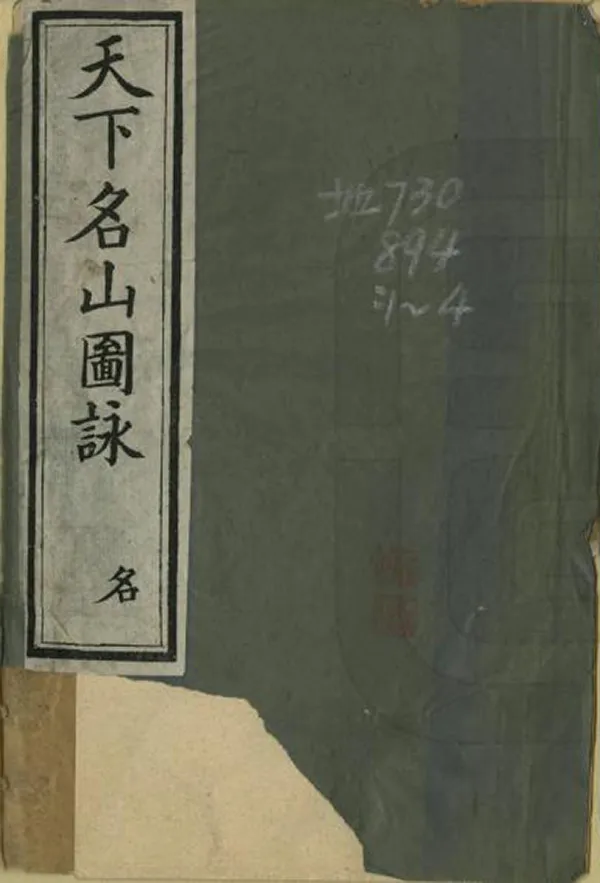 天下名山圖詠
名
地730
894
:1~4